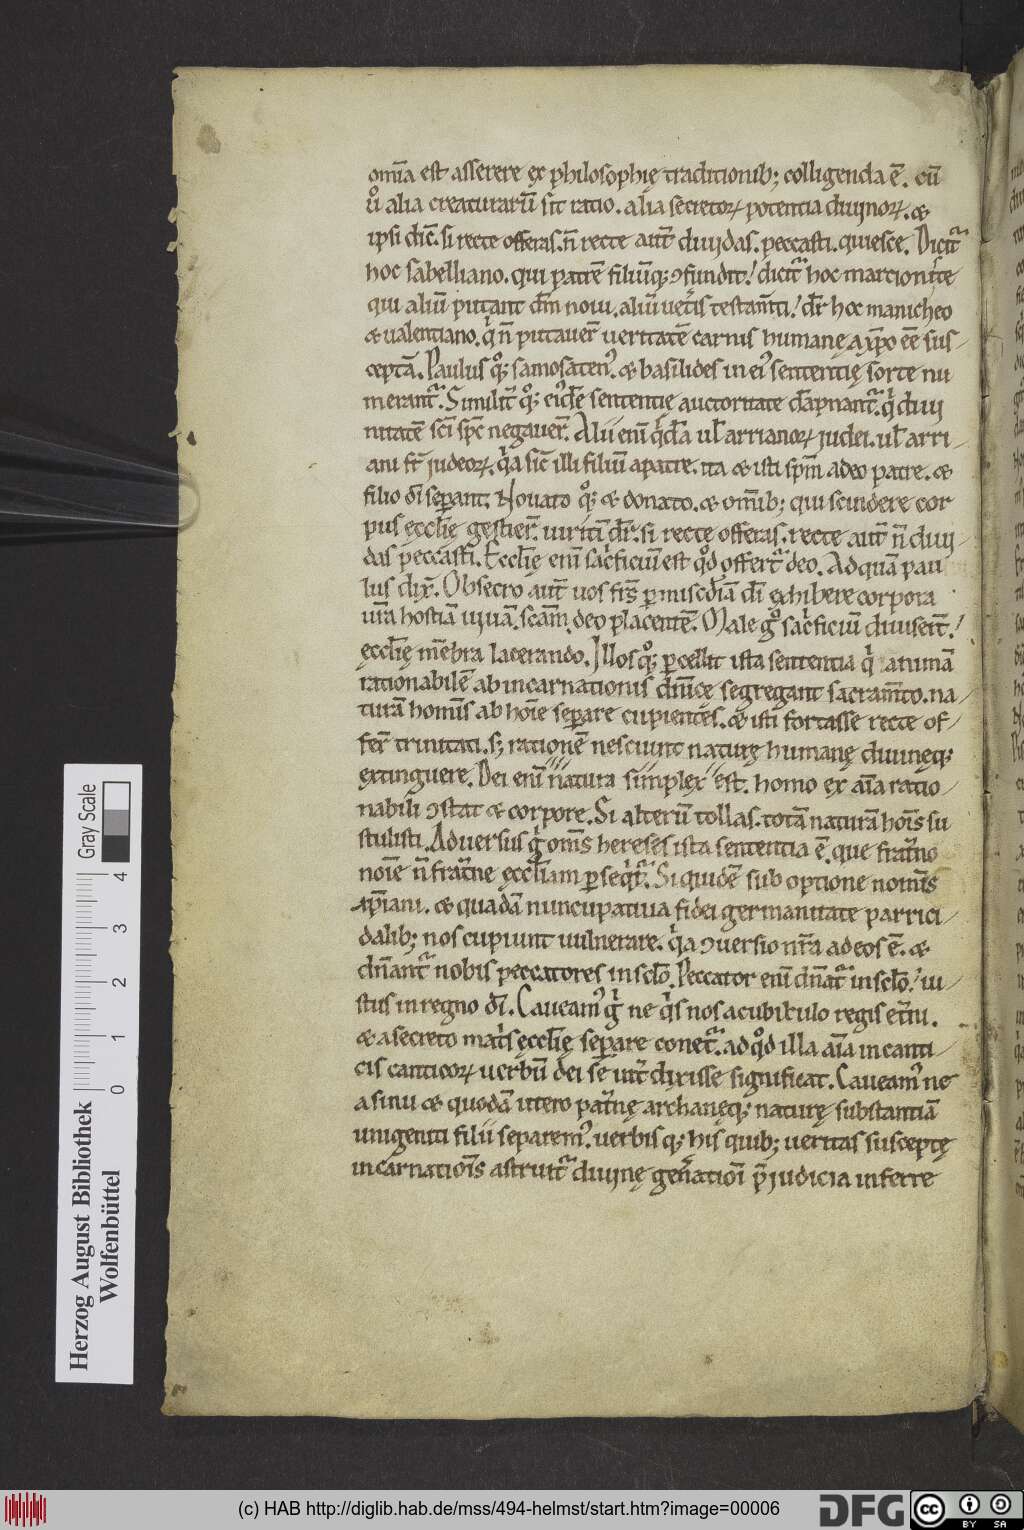 om̅ia est asserere ex philosophię traditionib; colligenda e̅. cu̅
ů alia creaturaru̅ sit ratio. alia secretoꝝ potentia diuinoꝝ. &
ipsi dic̅. si recte offeras. n̅ recte aut̅ diuidas. peccasti. quiesce. Dicit᷑
hoc sabelliano. qui patre̅ filiu̅q; ↄfundit! dicit᷑ hoc marcionite
qui aliu̅ putant dm̅ noui. aliu̅ uet̅is testam̅ti! dr̅ hoc manicheo
& ualentiano. qi n̅ putauer̅ ueritate̅ carnis humanę a xp̅o ee̅ sus-
cepta̅. Paulus qͦ; samosatenꝰ. & basilides in eiꝰ sententię sorte nu
merant᷑. Similit̅ qͦ; eiꝰde̅ sententię auctoritate da̅pnant᷑. qi diui
nitate̅ sc̅i sp̅c negauer̅. Alii eni̅ qida̅ ul̅ arrianoꝝ iudei. ul̅ arri-
ani st̅ iudeoꝝ. qia sic̅ illi filiu̅ a patre. ita & isti sp̅m a deo patre. &
filio di̅ sep̲ant. Nouato qͦ; & donato. & om̅ib; qui scindere cor
pus ęccl̅ię gestier̅. uiriti̅ dr̅. si recte offeras. recte aut̅ n̅ diui-
das peccasti. Eccl̅ię eni̅ sacificiu̅ est qͦd offert᷑ deo. Ad qua̅ pau
lus dix̅. Obsecro aut̅ uos fr̅s p̲ misc̅dia̅ di̅ exhibere corpora
ur̅a hostia̅ uiua̅. sc̅am. deo placente̅. Male gͦ sacificiu̅ diuiserit̅!
ęccl̅ię me̅bra lacerando. Illos qͦ; p̲cellit ista sententia qi anima̅
rationabile̅ ab incarnationis diui̅cę segregant sacram̅to. na-
tura̅ homi̅s ab hoi̅e sep̲are cupientes. & isti fortasse recte of-
fer̅ trinitati. s; ratione̅ nesciunt naturę humanę diuineq;
extinguere. Dei eni̅ natura simplex est. homo ex ai̅a ratio-
nabili ↄstat & corpore. Si alteru̅ tollas. tota̅ natura̅ hoi̅s su
stulisti. Aduersus gi om̅s hereses ista sententia e̅. que frat̅no
noi̅e n̅ frat̅ne ęccl̅iam p̲seqit᷑. Siquide̅ sub optione nomi̅s
xp̅iani. & quada̅ nuncupatiua fidei germanitate parrici-
dalib; nos cupiunt uulnerare. qia ↄuersio nr̅a ad eos e̅. &
dn̅ant᷑ nobis peccatores in sc̅lo. Peccator eni̅ dn̅at᷑ in sc̅lo! iu-
stus in regno di̅. Caueamꝰ gi ne qis nos a cubiculo regis et̅ni.
& a secreto mat̅is ęccl̅ię sep̲are conet᷑. ad qͦd illa ai̅a in canti-
cis canticoꝝ uerbu̅ dei se uit̅ dixisse significat. Caueamꝰ ne
a sinu & quoda̅ utero pat̅nę archaneq; naturę substantia̅
unigeniti filii separemꝰ. uerbis q; his quib; ueritas susceptę
incarnatio̅is astruit᷑ diuinę gen̅atioi̅ p̅iudicia inferre
Herzog August Bibliothek
Wolfenbüttel
Gray Scale
0 1 2 3 4
(c) HAB http://diglib.hab.de/mss/494-helmst/start.htm?image=00006
DFG
cc BY SA